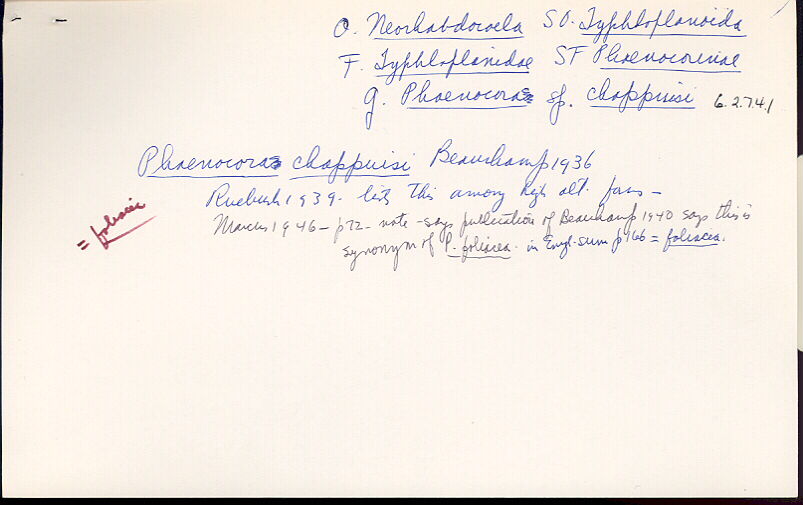 O. Neorhabdocoela SO. Typhloplanoida
F. Typhloplanidae SF Phaenocorinae
g. Phaenocora sp. chappuisi 6.2.7.4.1
Phaenocora chappuisi Beauchamp 1936
Ruebush 1939. lists this among high alt. fauns -
= foliacea
Marcus 1946 - p72 - note - says publication of Beauchamp 1940 says this is
synonym of P. foliacea. in Engl. sum p166 = foliacea.